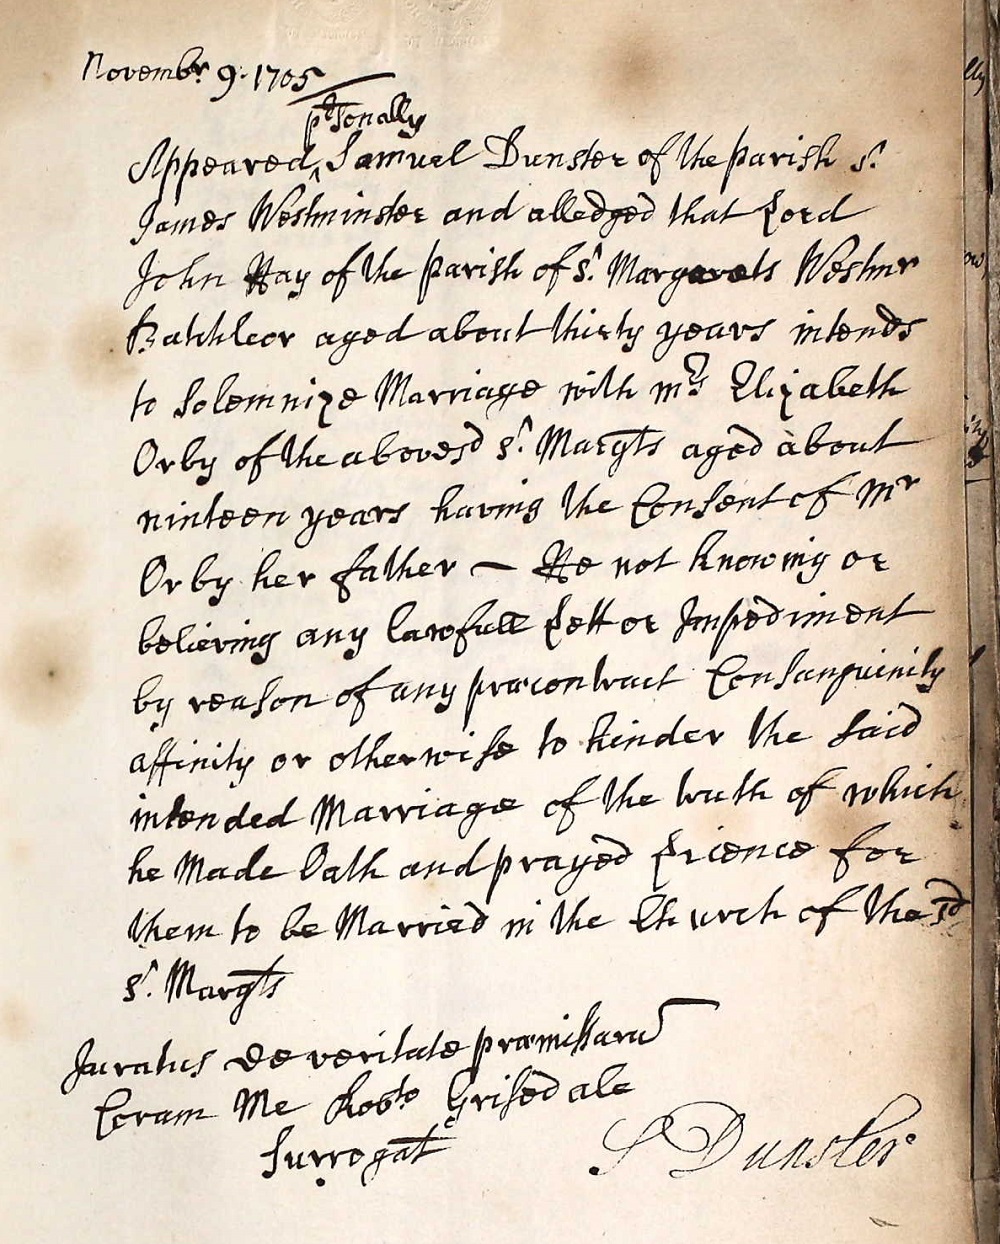 Novembr. 9. 1705
psonally
Appeared ^ Samuel Dunster of the parish St.
James Westminster and alledged that Lord
John Hay of the parish of St. Margarets Westmr
Batchleor aged about thirty years intends
to Solemnize Marriage with Mrs Elizabeth
Orby of the abovesd St. Margts aged about
ninteen years having the Consent of Mr
Orby her father — He not knowing or
believing any lawfull Lett or Impediment
by reason of any præcontract Consanguinity
affinity or otherwise to hinder the said
intended Marriage of the truth of which
he Made Oath and prayed Licence for
them to be Married in the Church of the sd
St. Margts
Juratus de veritate præmissaru
Coram Me Robto Grisedale
Surrogat
S Dunster